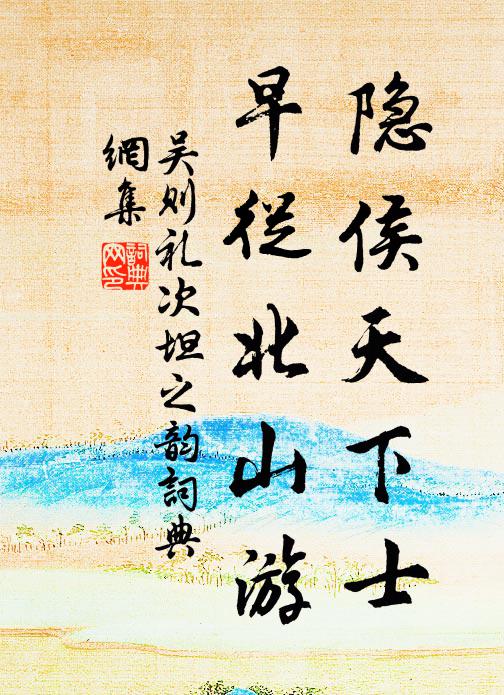 隐侯天下士
早從北山游
吴则礼次坦之韵詞典
網集
詞典
网印